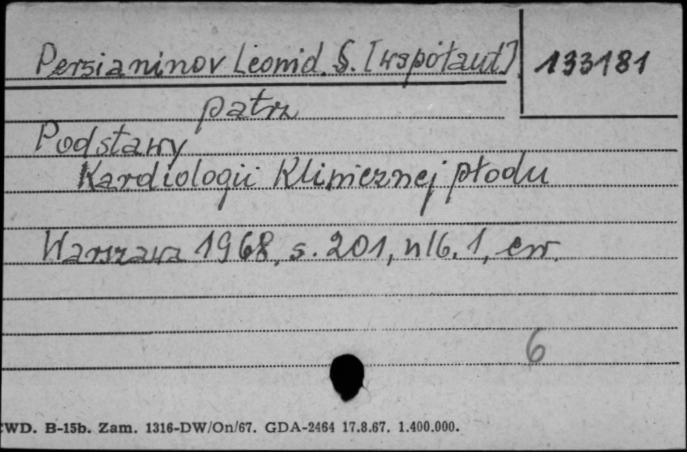 Persianinov Leonid. S. [współaut.] 133181
patrz
Podstawy
Kardiologii Klinicznej płodu
Warszawa 1968, s. 201, nlb. 1, err.
6
CWD. B-15b. Zam. 1316-DW/On/67. GDA-2464 17.8.67. 1.400.000.